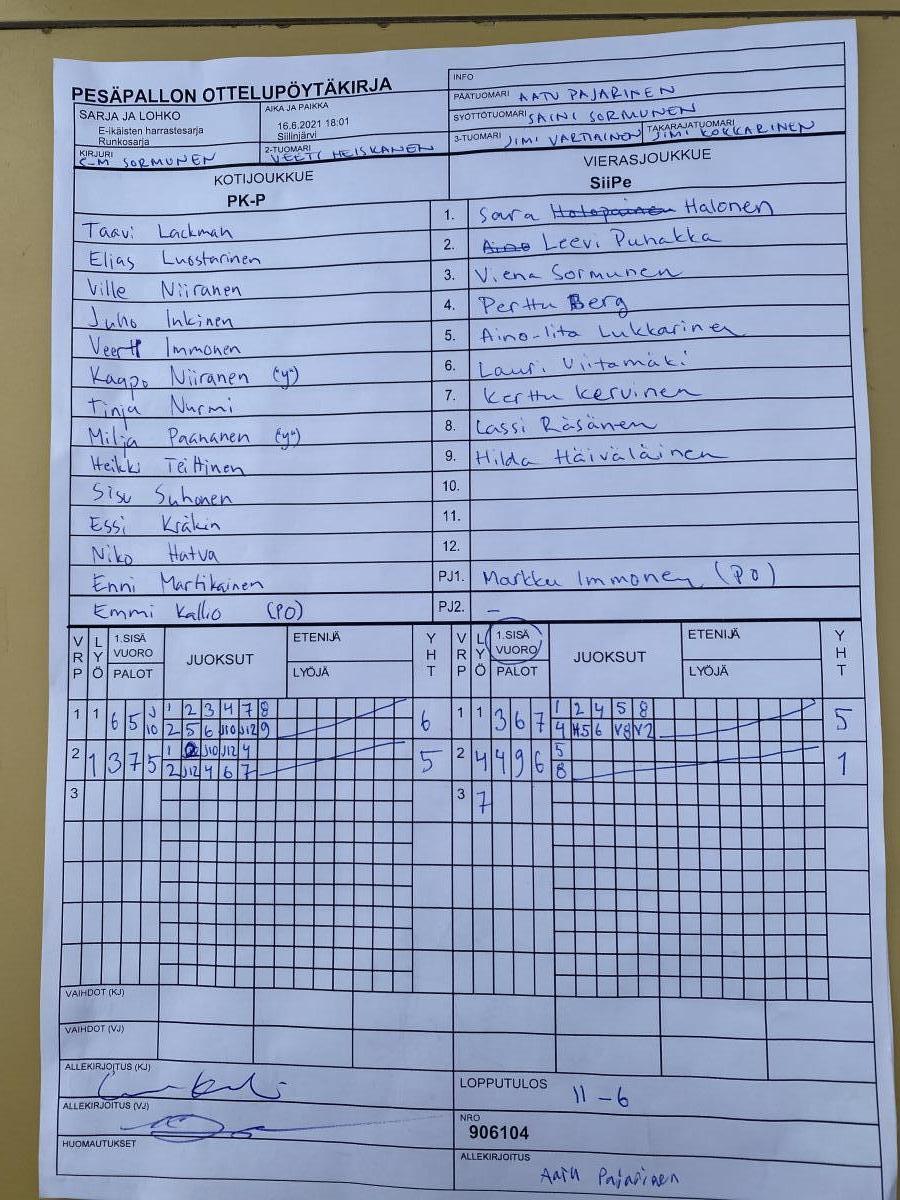 PESÄPALLON OTTELUPÖYTÄKIRJA
INFO
PÄÄTUOMARI AATU PAJARINEN
SARJA JA LOHKO
E-ikäisten harrastesarja
Runkosarja
AIKA JA PAIKKA
16.6.2021 18:01
Siilinjärvi
SYÖTTÖTUOMARI SAINI SORMUNEN
3-TUOMARI JIMI VARTIAINEN TAKARAJATUOMARI JIMI KOKKARINEN
KIRJURI E-M SORMUNEN 2-TUOMARI VEETI HEISKANEN
KOTIJOUKKUE VIERASJOUKKUE
PK-P SiiPe
Taavi Lackman 1. Sara Halonen
Elias Luostarinen 2. Leevi Puhakka
Ville Niiranen 3. Viena Sormunen
Juho Inkinen 4. Perttu Berg
Veertti Immonen 5. Aino-Iita Lukkarinen
Kaapo Niiranen ("y") 6. Lauri Viitamäki
Tinja Nurmi 7. Kerttu Kervinen
Milja Paananen ("y") 8. Lassi Räsänen
Heikki Teittinen 9. Hilda Häiväläinen
Sisu Suhonen 10.
Essi Kräkin 11.
Niko Hatva 12.
Enni Martikainen PJ1. Markku Immonen (PO)
Emmi Kallio (PO) PJ2. –
VRP LYÖ 1.SISÄ VUORO PALOT JUOKSUT ETENIJÄ LYÖJÄ YHT VRP LYÖ 1.SISÄ VUORO PALOT JUOKSUT ETENIJÄ LYÖJÄ YHT
1 1 6 5 J10 1 2 3 4 7 8 6 1 1 3 6 7 1 2 4 5 8 5
2 5 6 J10 J12 9 4 H5 6 V8 V2
2 1 3 7 5 1 J10 J12 4 5 2 4 4 9 6 5 1
2 J12 4 6 7 8
3 3 7
VAIHDOT (KJ)
VAIHDOT (VJ)
ALLEKIRJOITUS (KJ)
LOPPUTULOS 11-6
ALLEKIRJOITUS (VJ)
NRO
906104
HUOMAUTUKSET
ALLEKIRJOITUS Aatu Pajarinen